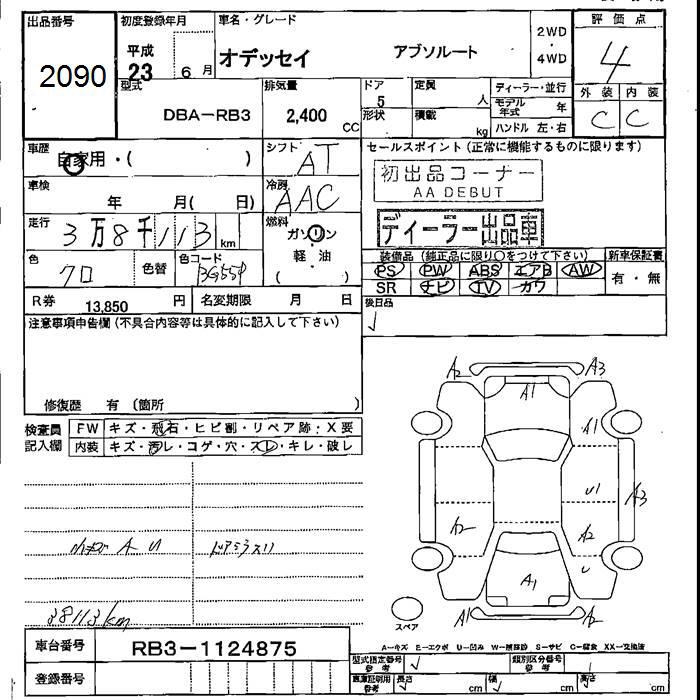 出品番号
2090
初度登録年月
平成 23 年 6 月
車名・グレード
オデッセイ アブソルート
2WD
4WD
評価点
4
外装 内装
C C
型式
DBA-RB3
排気量
2,400 CC
ドア
5
形状
定員
人
積載
kg
ディーラー・並行
モデル年式 年
ハンドル 左・右
車歴
自家用・( )
シフト
AT
車検
年 月( 日)
冷房
AAC
走行
3万8千113 km
燃料
ガソリン
軽油
( )
色
クロ
色替
色コード
R券 13,850 円
名変期限 月 日
セールスポイント(正常に機能するものに限ります)
初出品コーナー
AA DEBUT
ディーラー出品車
装備品(純正品に限り○をつけて下さい)
新車保証書
PS PW ABS エアB AW
SR ナビ TV カワ
有・無
後日品
注意事項申告欄(不具合内容等は具体的に記入して下さい)
修復歴 有(箇所
検査員記入欄
FW キズ・飛石・ヒビ割・リペア跡:X要
内装 キズ・汚レ・コゲ・穴・スレ・キレ・破レ
小キズ A U
ドアミラスリ
38113km
A2 A3
A1
A1
U1
A3
A2
A2
U
A1
A1
A2
スペア
A-キズ E-エクボ U-凹み W-補修跡 S-サビ C-腐食 XX-交換済
車台番号
RB3-1124875
登録番号
型式指定番号 参考
類別区分番号 参考
車庫証明用 参考
長さ cm
幅 cm
高さ cm